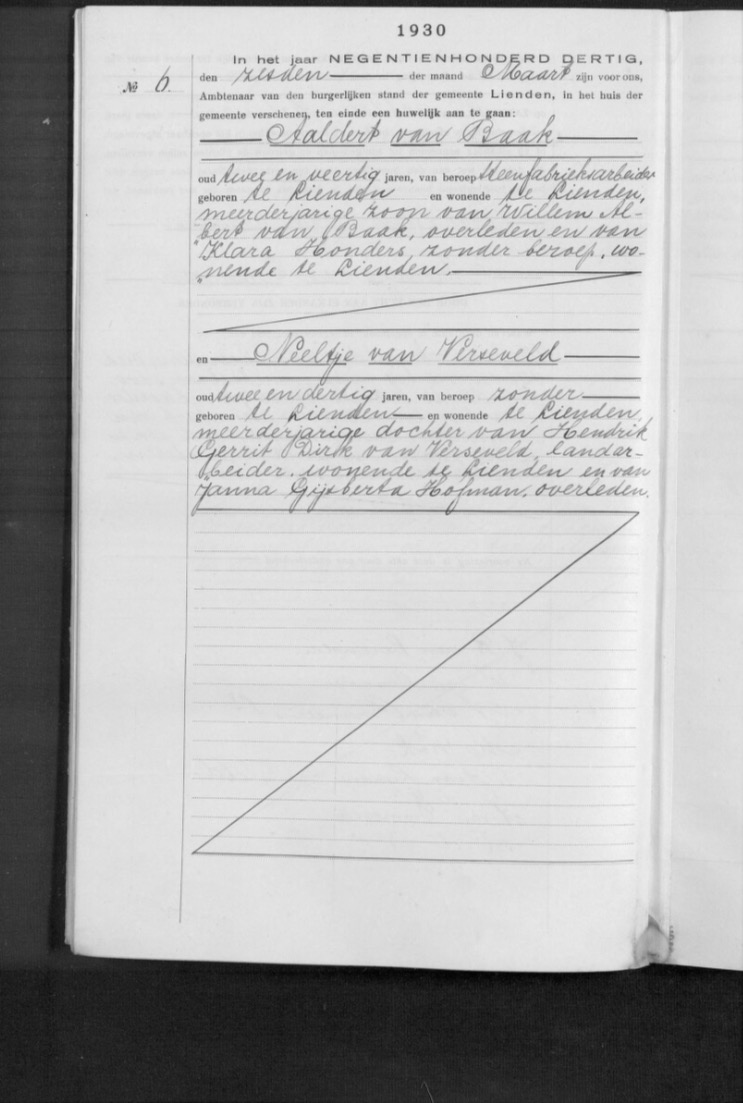 1930
In het jaar NEGENTIENHONDERD DERTIG,
№ 6. den zesden der maand Maart zijn voor ons,
Ambtenaar van den burgerlijken stand der gemeente Lienden, in het huis der
gemeente verschenen, ten einde een huwelijk aan te gaan:
Aaldert van Baak
oud twee en veertig jaren, van beroep steenfabrieksarbeider
geboren te Lienden en wonende te Lienden,
meerderjarige zoon van Willem Al-
bert van Baak, overleden en van
Klara Honders, zonder beroep, wo-
nende te Lienden.
en Neeltje van Verseveld
oud twee en dertig jaren, van beroep zonder
geboren te Lienden en wonende te Lienden,
meerderjarige dochter van Hendrik
Gerrit Dirk van Verseveld, landar-
beider, wonende te Lienden en van
Janna Gijsberta Hofman, overleden.